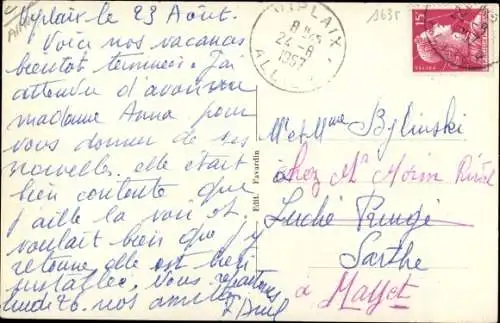 Uzplaix le 23 Août.
Voici nos vacances
bientôt terminées. J'ai
attendu d'avoir vu
madame Anna pour
vous donner de ses
nouvelles. elle était
bien contente que
j'aille la voir et
voulait bien que j'y
retourne elle est bien
installée, Vous repartons
lundi 26. nos amitiés
AYPLAIX
24-8
1957
ALL
163r
15F
Edit. Favardin
M et Mme Bylinski
à chez Mr Morin
Luché Pringé
Sarthe
à Mayet